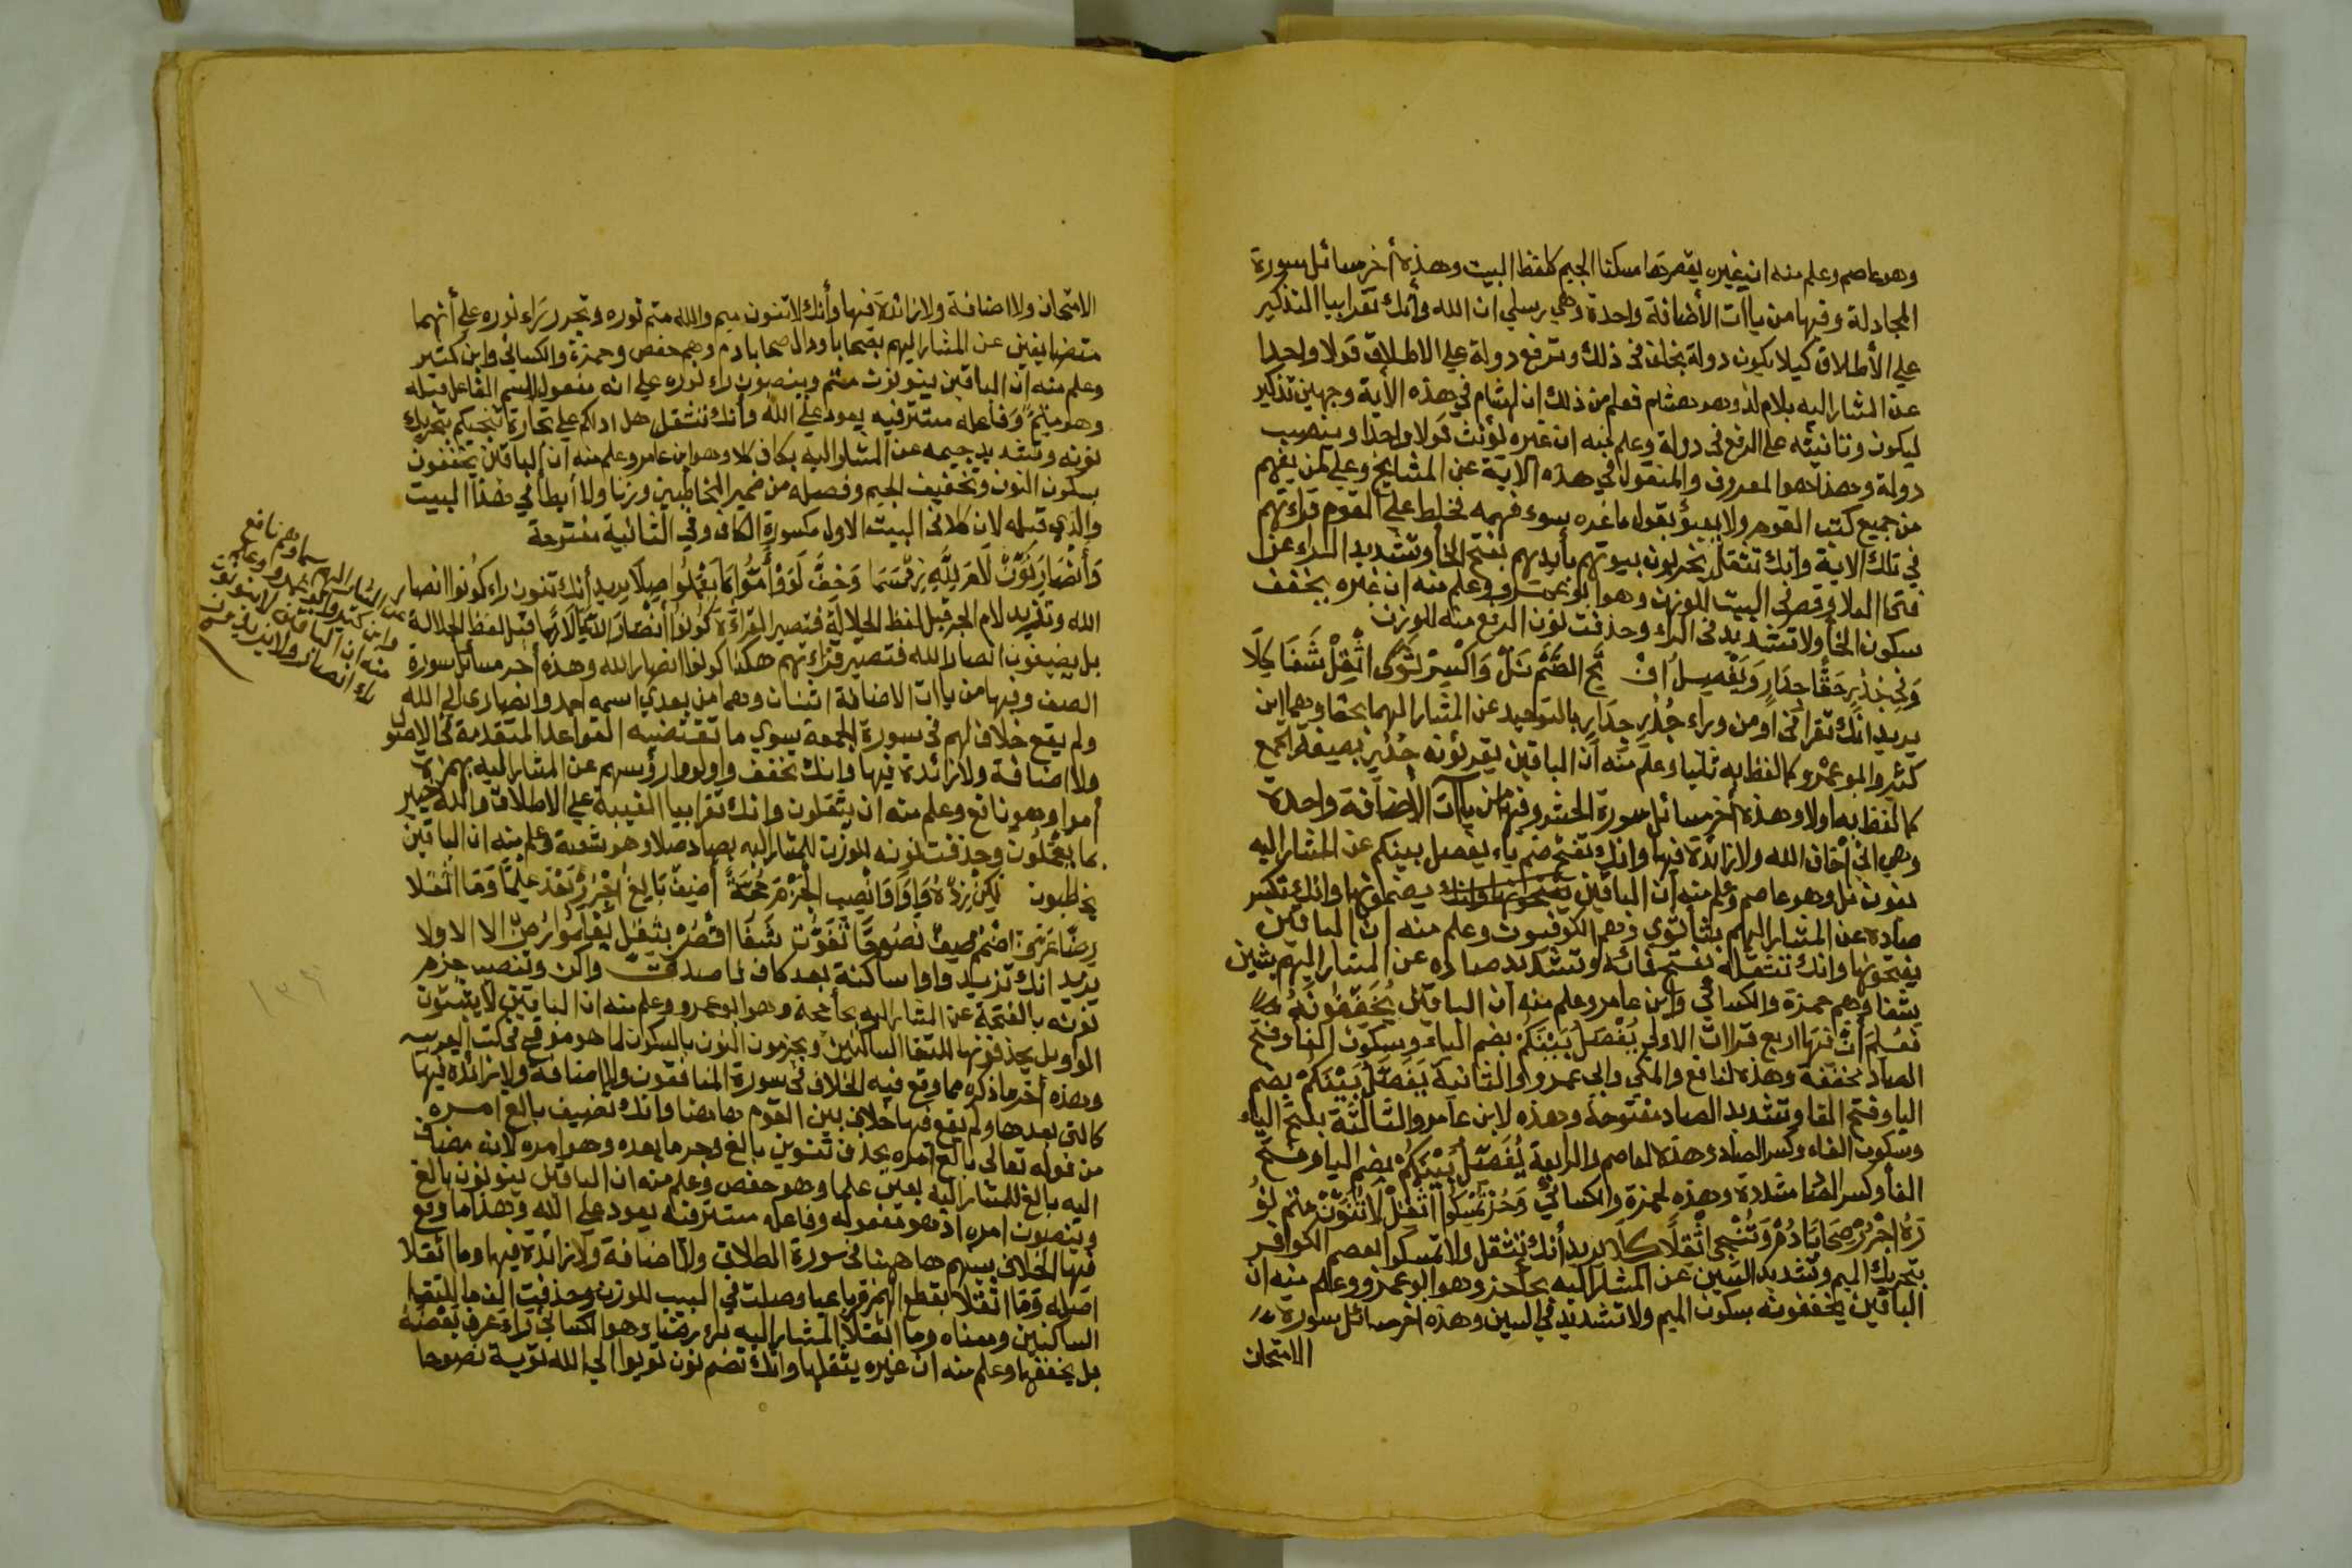 وهو عاصم وعلم منه ان غيره يقصرها مسكنا الجيم كلفظ البيت وهذه أخر مسائل سورة
المجادلة وفيها من ياآت الأضافة واحدة وهي رسلي ان الله وأنك تقرا بيا التذكير
علي الأطلاق كيلا يكون دولة بخلف في ذلك وترفع دولة علي الاطلاق قولا واحدا
عن المشار اليه بلام لذ وهو هشام فعلم من ذلك ان لهشام في هذه الآية وجهين تذكير
ليكون وتانيثه علي الرفع في دولة وعلم منه ان غيره يؤنث قولا واحدا وينصب
دولة وهذا هو المعروف والمنقول في هذه الآية عن المشايخ وعلي من يفهم
من جميع كتب القوم ولا يعبؤ بقول ما غره بسوء فهمه فخلط علي القوم قراءتهم
في تلك الاية وانك تثقل يخربون بيوتهم بأيديهم بفتح الخأ وتشديد الراء عن
فتحا العلا وقصر في البيت للوزن وهو ابو عمرو وعلم منه ان غيره يخفف
سكون الخأ ولا تشديد في الراء وحذفت نون الرفع منه للوزن
وفي جذر حقا جدار ويفصل ان يح الضم نل واكسر ثوي اثقل شفا كلا
يريد انك تقرا في او من وراء جدر جدار بالتوحيد عن المشار اليهما بحقا وهما ابن
كثير وابو عمرو كما لفظ به ثانيا وعلم منه أن الباقين يقرئونه جدر بصيغة الجمع
كما لفظ به اولا وهذه أخر مسائل سورة الحشر وفيها من ياآت الأضافة واحدة
وهي اني أخاف الله ولا زائدة فيها وانك تفتح ضم ياء يفصل بينكم عن المشار اليه
بنون نل وهو عاصم وعلم منه أن الباقين يضمونها وانك تكسر
صاده عن المشار اليهم بثا ثوي وهم الكوفيون وعلم منه ان الباقين
يفتحونها وانك تثقله بفتح فائه وتشديد صاده عن المشار اليهم بشين
شفا وهم حمزة والكسائي وابن عامر وعلم منه أن الباقين يخففونه
فعلم أن فيها اربع قراات الاولي يفصل بينكم بضم الياء وسكون الفا وفتح
الصاد مخففة وهذه لنافع والمكي وابي عمرو والثانية يفصل بينكم بضم
اليا وفتح الفا وتشديد الصاد مفتوحة وهذه لابن عامر والثالثة بفتح الياء
وسكون الفاء وكسر الصاد وهذه لعاصم والرابعة يفصل بينكم بضم اليا وفتح
الفأ وكسر الصا مشددة وهذه لحمزة والكسائي وحز تمسكوا اثقل لا تنون متم نو
ره اجرر صحابا دم وتنجي اثقلا كلا يريد أنك تثقل ولا تمسكوا بعصم الكوافر
بتحريك الميم وتشديد السين عن المشار اليه بحأ حز وهو ابو عمرو وعلم منه ان
الباقين يخففونه بسكون الميم ولا تشديد في السين وهذه اخر مسائل سورة
الامتحان
الامتحان ولا اضافة ولا زائدة فيها وأنك لا تنون ميم والله متم نوره وتجرر راء نوره علي أنهما
متضايفين عن المشار اليهم بصحابا ودال صحابا دم وهم حفص وحمزة والكسائي وابن كثير
وعلم منه أن الباقين ينونون متم وينصبون راء نوره علي انه مفعول لاسم الفاعل قبله
وهو متم وفاعله مستتر فيه يعود علي الله وأنك تثقل هل ادلكم علي تجارة تنجيكم بتحريك
نونه وتشديد جيمه عن المشار اليه بكاف كلا وهو ابن عامر وعلم منه أن الباقين يخففون
بسكون النون وتخفيف الجيم وفصله من ضمير المخاطبين وزنا ولا أبطا في هذا البيت
والذي قبله لان كلا في البيت الاول مكسورة الكاف وفي الثانية مفتوحة
وأنصار نون لام لله زد سما وخف لووا أمنوا بما يعملوا صلا يريد أنك تنون راء كونوا انصار
الله وتزيد لام الجر قبل لفظ الجلالة فتصير القراءة كونوا أنصارا لله لأنها قبل لفظ الجلالة
بل يضيفون انصار الله فتصير قراءتهم هكذا كونوا انصار الله وهذه أخر مسائل سورة
الصف وفيها من ياات الاضافة اثنتان وهما من بعدي اسمه احمد وانصاري الي الله
ولم يقع خلاف لهم في سورة الجمعة سوي ما تقتضيه القواعد المتقدمة في الاصول
ولا اضافة ولا زائدة فيها وانك تخفف واو لووا رؤسهم عن المشار اليه بهمزة
أموا وهو نافع وعلم منه ان يثقلون وانك تقرا بيا الغيبة علي الاطلاق والله خبير
بما يعملون وحذفت نونه للوزن للمشار اليه بصاد صلا وهو شعبة وعلم منه ان الباقين
يخاطبون
يريد انك تزيد واوا ساكنة بعد كاف فاصدق واكن وتنصب جزم
نونه بالفتحة عن المشار اليه بحأ حجة وهو ابو عمرو وعلم منه ان الباقين لا يثبتون
الواو بل يحذفونها لالتقا الساكنين ويجزمون النون بالسكون لما هو مذكور في كتب العربية
وهذه أخر ما ذكره مما وقع فيه الخلاف في سورة المنافقون ولا اضافة ولا زائدة فيها
كالتي بعدها ولم يقع فيها خلاف بين القوم هاهنا وأنك تضيف بالغ امره
من قوله تعالى بالغ أمره بحذف تنوين بالغ وجر ما بعده وهو امره لانه مضاف
اليه بالغ للمشار اليه بعين علما وهو حفص وعلم منه ان الباقين ينونون بالغ
وينصبون امره اذ هو مفعوله وفاعله مستتر فيه يعود علي الله وهذا ما وقع
فيها الخلاف بينهم هاهنا في سورة الطلاق ولا اضافة ولا زائدة فيها وما اثقلا
اصله وما اثقلا بقطع الهمزة رباعيا وصلت في البيت للوزن وحذفت الف ما لالتقا
الساكنين ومعناه وما اثقلا المشار اليه براء رضا وهو الكسائي راء عرف بعضه
بل يخففها وعلم منه ان غيره يثقلها وانك تضم نون توبوا الي الله توبة نصوحا
عن المشار اليهم بسما وهم نافع
وابن كثير وابو عمرو وعلم
منه ان الباقين لا ينونون
راء انصار ولا يزيدون